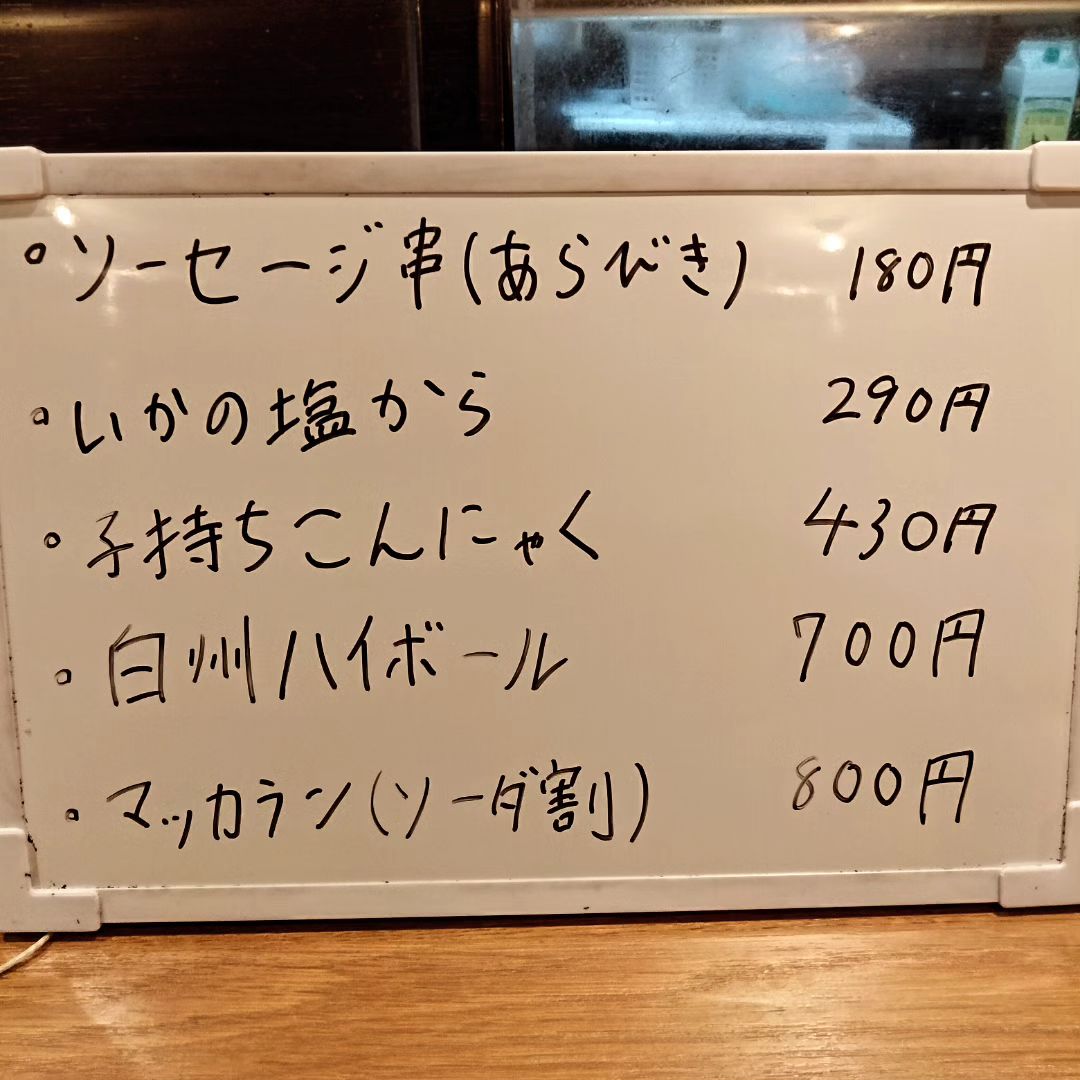 ・ソーセージ串(あらびき) 180円
・いかの塩から 290円
・子持ちこんにゃく 430円
・白州ハイボール 700円
・マッカラン(ソーダ割) 800円